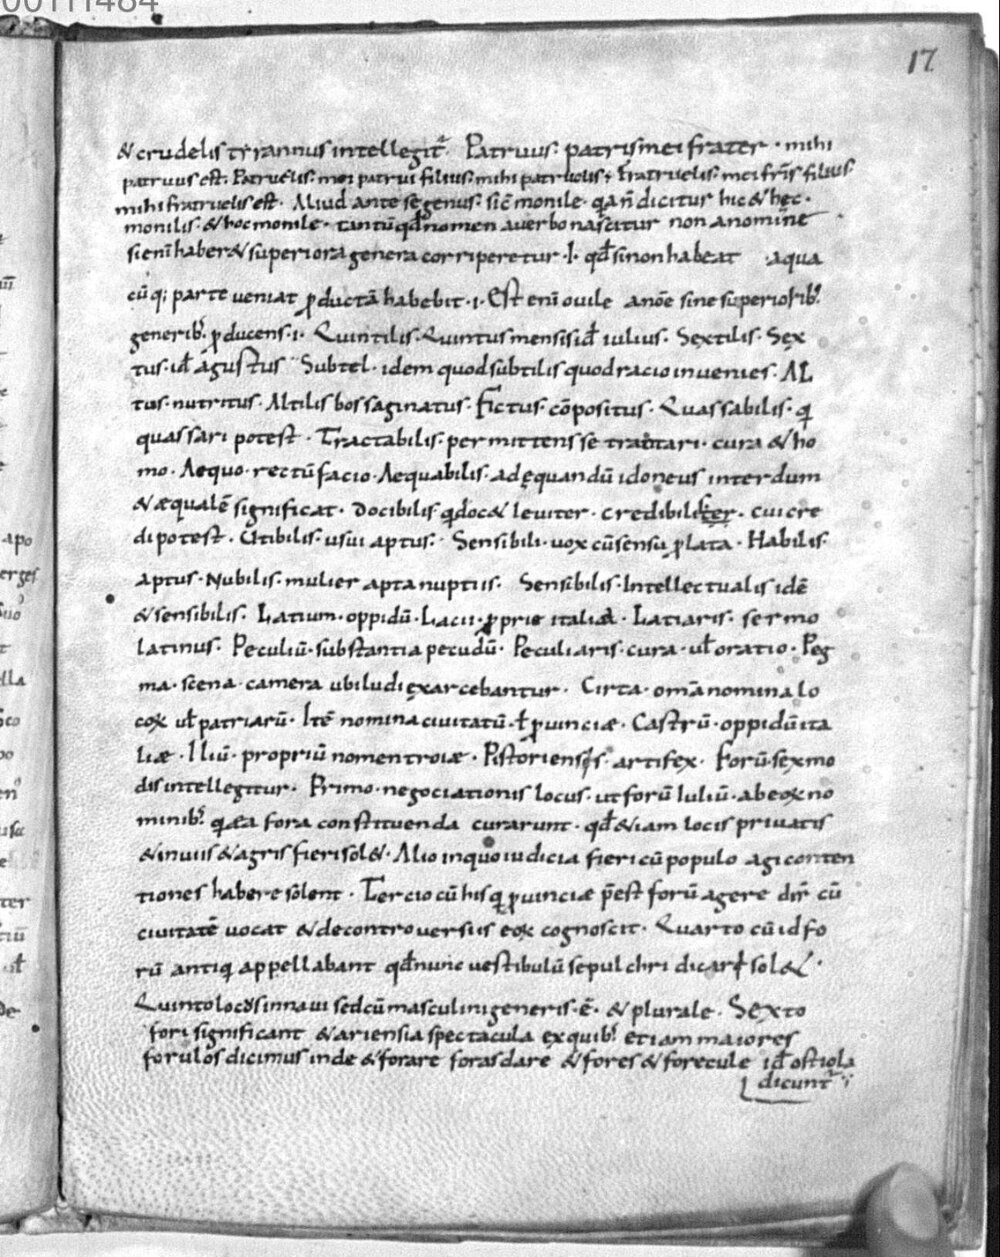 00111484
17
& crudelis tyrannus intellegit̃. Patruus· patris mei frater· mihi
patruus est. Patruelis· mei patrui filius· mihi patruelis; Fratruelis· mei fr̄is filius·
mihi fratruelis est· Aliud ante se genus· sic̄ monile· dicitur hic & hęc·
monilis· & hoc monile· tantū qđ nomen a uerbo nascitur non a nomine
si eni haber& superiora genera corriperetur ·I· qđ si non habeat aqua
cūq; parte ueniat ꝓductā habebit ·i· Est eni ouile a noe sine superiorib;
generib; ꝓducens ·i· Quintilis· Quintus mensis iđ iulius· Sextilis· Sex
tus· iđ agustus Subtel· idem quod subtilis quod racio inuenies· AL
tus· nutritus· Altilis bos saginatus· Fictus· cōpositus· Quassabilis· q
quassari potest· Tractabilis· permittens se tractari· cura & ho
mo· Aequo· rectū facio· Aequabilis· adęquandū idoneus interdum
& æqualē significat· Docibilis q doc& leuiter· credibiliter· cui cre
di potest· Utibilis· usui aptus· Sensibili· uox cū sensu ꝓlata· Habilis
aptus· Nubilis· mulier apta nuptiis· Sensibilis· Intellectualis idē
& sensibilis· Latium· oppidū· Lacii· ꝓprie italia· Latiaris· sermo
latinus· Peculiū· substantia pecudū· Peculiaris· cura· uł oratio· Peg
ma· scena· camera ubi ludi exarcebantur· Circa· omā nomina lo
coꝝ uł patriarū· Itē nomina ciuitatū· ł ꝓuinciæ· Castrū· oppidū ita
liæ· Iliū· propriū nomen troiæ· Pistoriensis· artifex· Forū· sex mo
dis intellegitur· Primo· negociationis locus· ut forū Iuliū· ab eoꝝ no
minib; q ea fora constituenda curarunt· qđ &iam locis priuatis
& in uiis & agris fieri sol&· Alio in quo iudicia fieri cū populo agi conten
tiones habere solent· Tercio cū his q ꝓuinciæ p̄est forū agere dir̄ cū
ciuitatē uocat & de controuersiis eoꝝ cognoscit· Quarto cū id fo
rū antiq appellabant qđ nunc uestibulū sepulchri dicari sol&·
Quinto locus in naui sed cū masculini generis· ē· & plurale· Sexto
fori significant & ariensia spectacula ex quib; etiam maiores
forulos dicimus inde & forare foras dare & fores & forecule iđ ostiola
dicunt̃